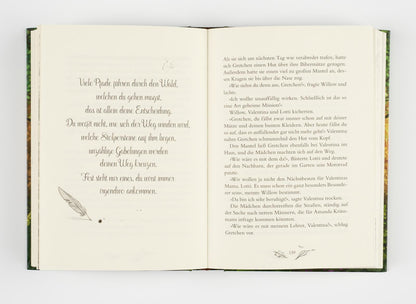 Viele Pfade führen durch den Wald,
welchen du gehen magst,
das ist allein deine Entscheidung.
Du weißt nicht, wie sich der Weg winden wird,
welche Stolpersteine auf ihm liegen,
unzählige Gabelungen werden
deinen Weg kreuzen.
Fest steht nur eines, du wirst immer
irgendwo ankommen.
Als sie am nächsten Tag wie verabredet trafen, hatte
sich Gretchen einen Hut über ihre Bibermütze gezogen.
Außerdem hatte sie einen viel zu großen Mantel an, des-
sen Kragen sie bis über die Nase zog.
»Wie siehst du denn aus, Gretchen?«, fragte Willow und
lachte.
»Ich wollte unauffällig wirken. Schließlich ist das so
eine Art geheime Mission!«
Willow, Valentina und Lotti kicherten.
»Gretchen, du fällst zwar immer schon auf mit deiner
Mütze und deinen bunten Kleidern. Aber heute fällst du
so auf, dass es auffallender gar nicht mehr geht!« Valentina
zog der schmunzelnden Gretchen den Hut vom Kopf.
Den Mantel ließ Gretchen ebenfalls bei Valentina
im Haus, und die Mädchen machten sich auf den Weg.
»Wie wäre es mit dem da?«, flüsterte Lotti und deutete
auf den Nachbarn, der gerade im Garten sein Motorrad
putzte.
»Wir wollen ja nicht den Nächstbesten für Valentinas
Mama, Lotti. Es muss schon ein ganz besonders Besonde-
rer sein«, meinte Willow bestimmt.
»Da bin ich sehr beruhigt!«, sagte Valentina trocken.
Die Mädchen durchstreiften die Straßen, ständig auf
der Suche nach netten Männern, die für Amanda
infrage kommen könnten.
»Wie wäre es mit meinem Lehrer, Valentina?«, schlug
Gretchen vor.